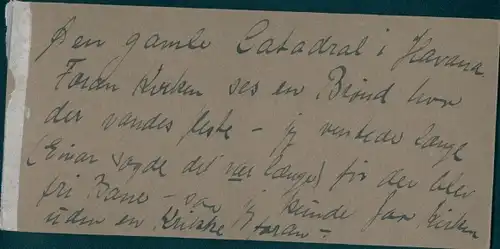 Den gamle Catadral i Havana
Foran Kirken ses en Brønd hvor
der vandes Heste – jeg ventede længe
(Einar sagde det var længe) før der blev
fri Bane – saa jeg kunde faa Kirken
uden en Kridske foran –.